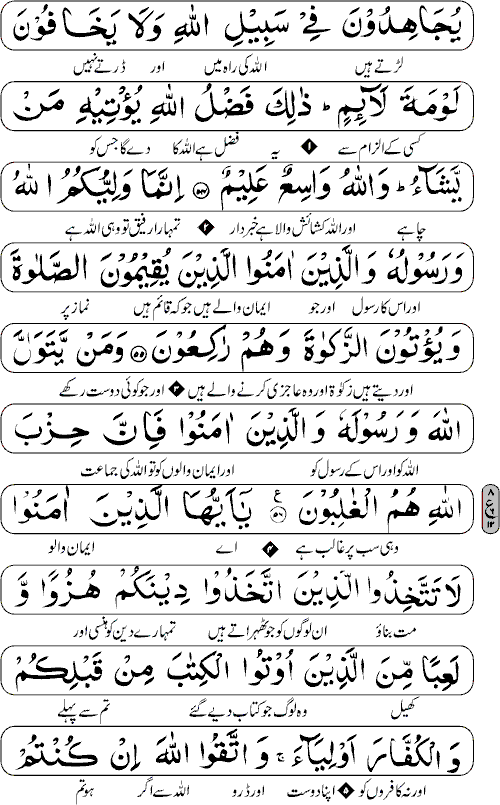 يُجَاهِدُوْنَ فِيْ سَبِيْلِ اللهِ وَلَا يَخَافُوْنَ
لڑتے ہیں اللہ کی راہ میں اور ڈرتے نہیں
لَوْمَةَ لَآئِمٍ ؕ ذٰلِكَ فَضْلُ اللهِ يُؤْتِيْهِ مَنْ
کسی کے الزام سے ۱ یہ فضل ہے اللہ کا دے گا جس کو
يَّشَآءُ ؕ وَاللهُ وَاسِعٌ عَلِيْمٌ ۵۴ اِنَّمَا وَلِيُّكُمُ اللهُ
چاہے اور اللہ کشائش والا ہے خبردار ۲ تمہارا رفیق تو وہی اللہ ہے
وَرَسُوْلُهٗ وَالَّذِيْنَ اٰمَنُوا الَّذِيْنَ يُقِيْمُوْنَ الصَّلٰوةَ
اور اس کا رسول اور جو ایمان والے ہیں جو کہ قائم ہیں نماز پر
وَيُؤْتُوْنَ الزَّكٰوةَ وَهُمْ رٰكِعُوْنَ ۵۵ وَمَنْ يَّتَوَلَّ
اور دیتے ہیں زکوٰۃ اور وہ عاجزی کرنے والے ہیں ۳ اور جو کوئی دوست رکھے
اللهَ وَرَسُوْلَهٗ وَالَّذِيْنَ اٰمَنُوْا فَاِنَّ حِزْبَ
اللہ کو اور اس کے رسول کو اور ایمان والوں کو تو اللہ کی جماعت
اللهِ هُمُ الْغٰلِبُوْنَ ۵۶ ع يٰۤاَيُّهَا الَّذِيْنَ اٰمَنُوْا
وہی سب پر غالب ہے ۴ اے ایمان والو
لَا تَتَّخِذُوا الَّذِيْنَ اتَّخَذُوْا دِيْنَكُمْ هُزُوًا وَّ
مت بناؤ ان لوگوں کو جو ٹھہراتے ہیں تمہارے دین کو ہنسی اور
لَعِبًا مِّنَ الَّذِيْنَ اُوْتُوا الْكِتٰبَ مِنْ قَبْلِكُمْ
کھیل وہ لوگ جو کتاب دیے گئے تم سے پہلے
وَالْكُفَّارَ اَوْلِيَآءَ ۚ وَاتَّقُوا اللهَ اِنْ كُنْتُمْ
اور نہ کافروں کو ۵ اپنا دوست اور ڈرو اللہ سے اگر ہو تم